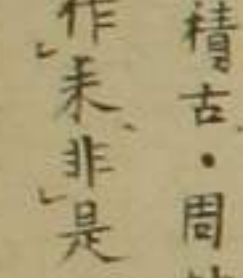 積古・周
作耒、非是